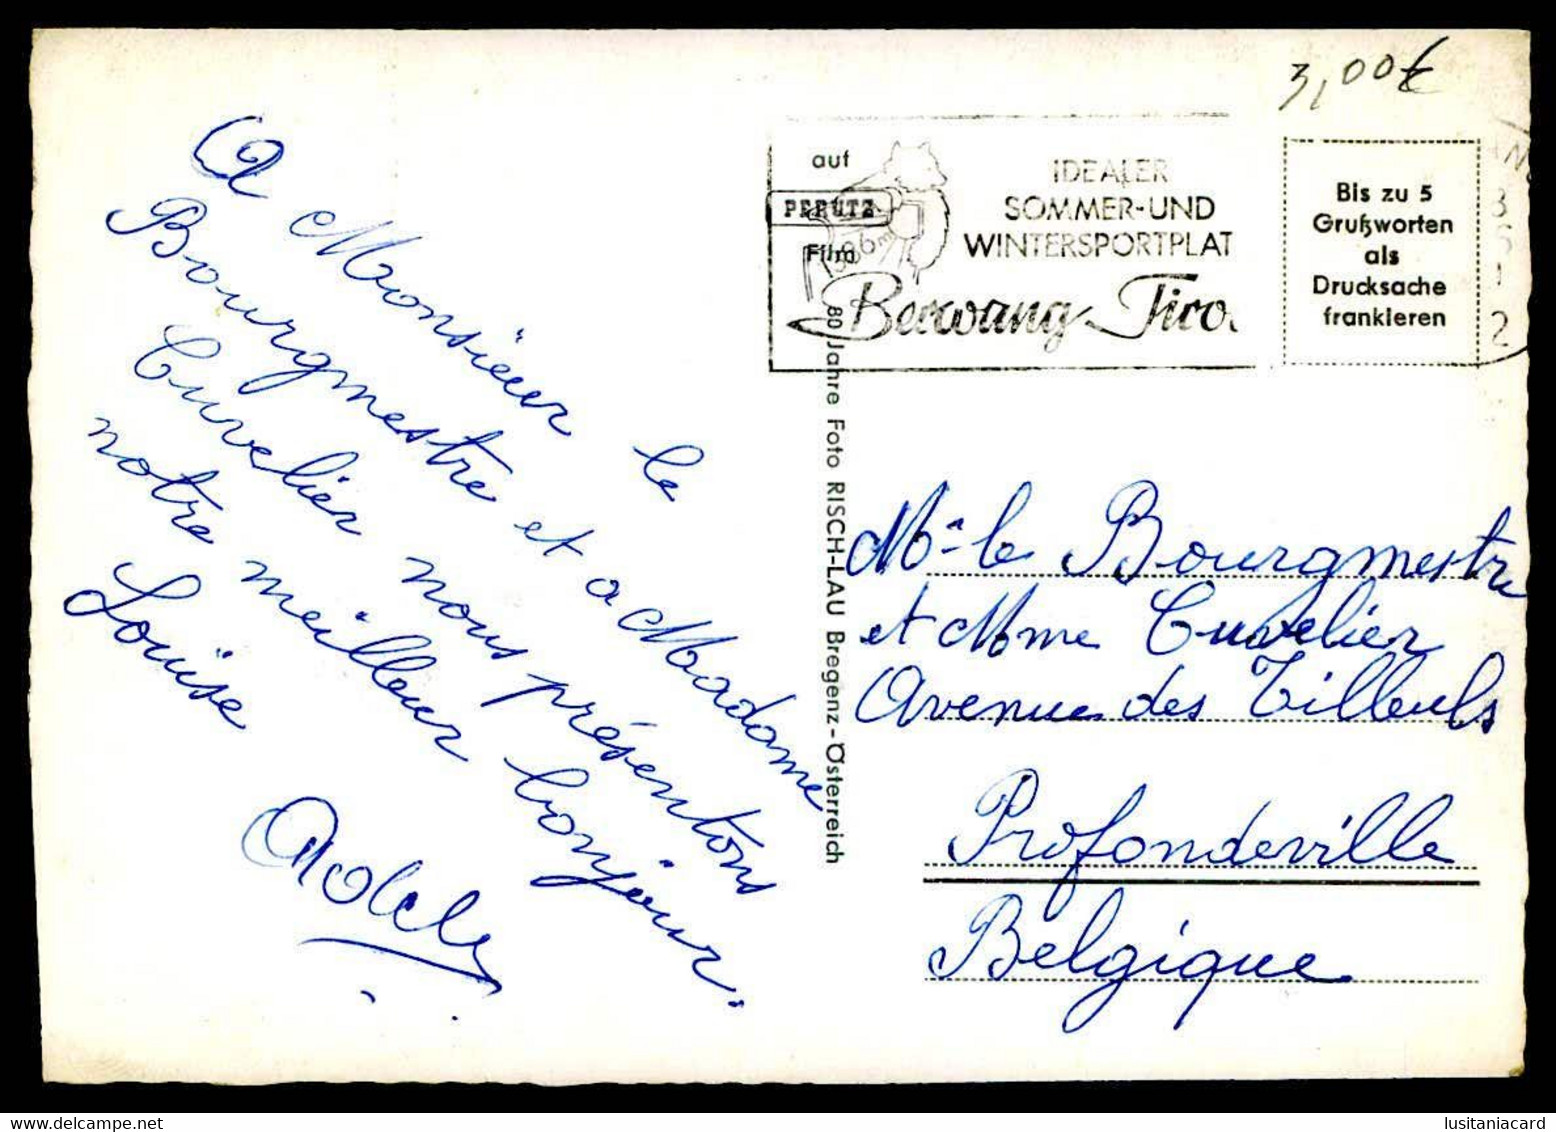 3,00€
A Monsieur le
Bourgmestre et a Madame
Cuvelier nous présentons
notre meilleur bonjour.
Louise
Adele
auf
PERUTZ
Film
IDEALER
SOMMER-UND
WINTERSPORTPLAT
Berwang Tiro
Bis zu 5
Grußworten
als
Drucksache
frankieren
80 Jahre Foto RISCH-LAU Bregenz-Österreich
Mr le Bourgmestre
et Mme Cuvelier
Avenue des Tilleuls
Profondeville
Belgique
lusitaniacard
delcampe.net